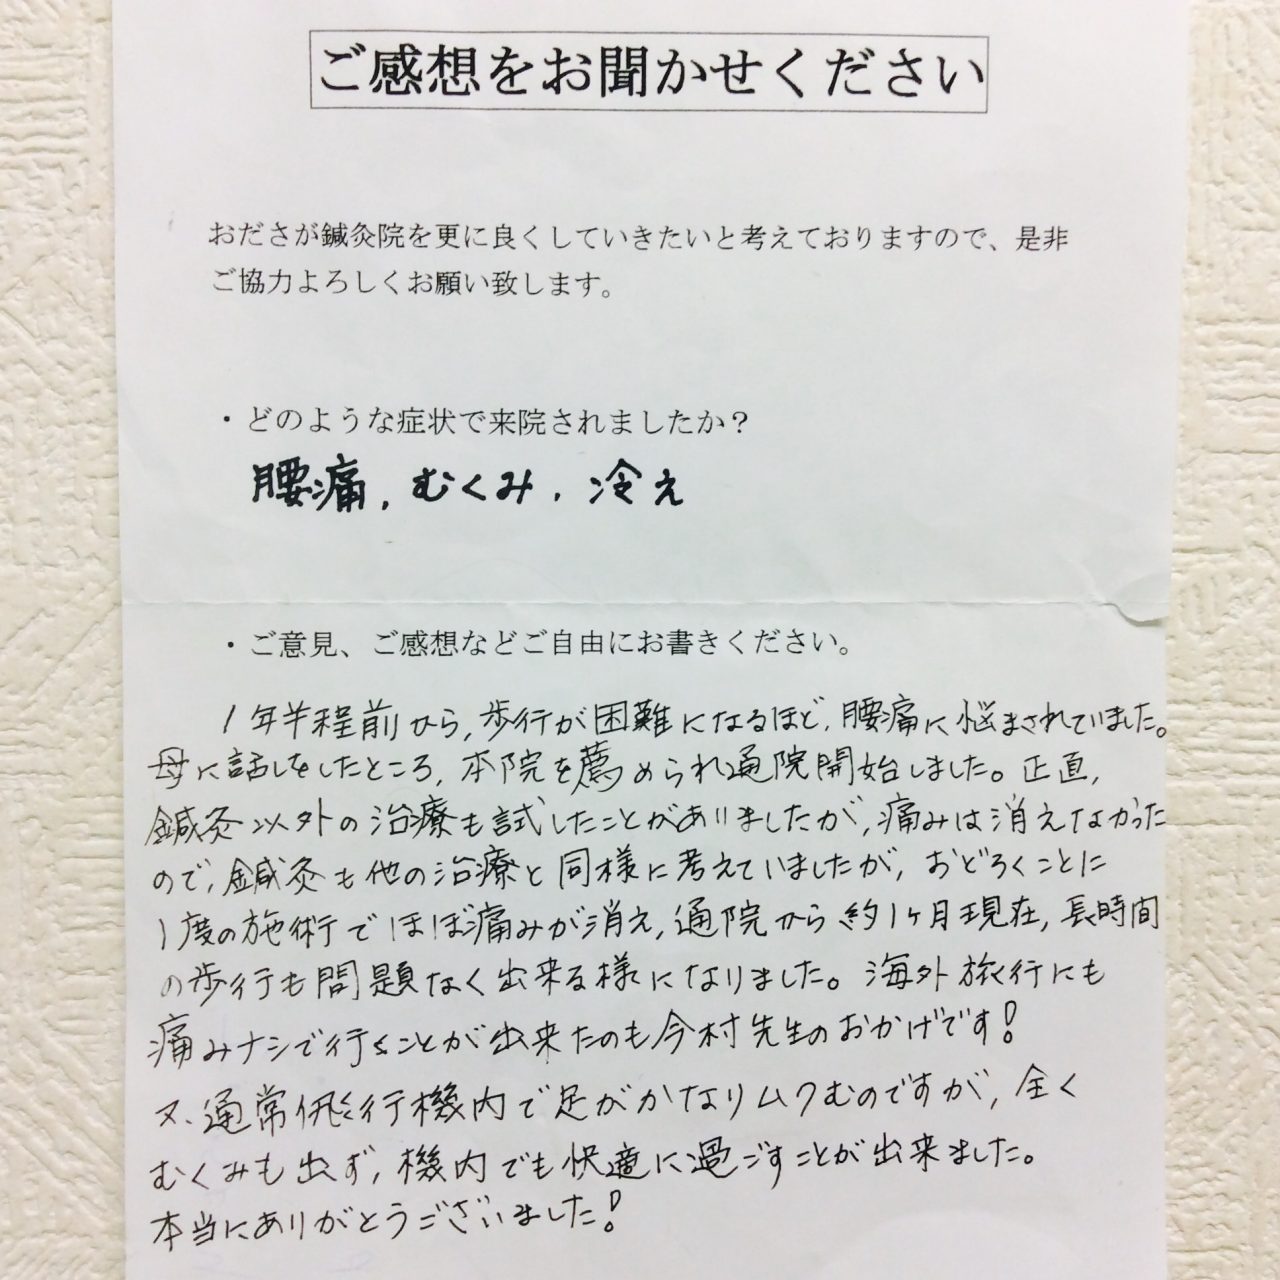 ご感想をお聞かせください
おださが鍼灸院を更に良くしていきたいと考えておりますので、是非
ご協力よろしくお願い致します。
・どのような症状で来院されましたか？
腰痛，むくみ，冷え
・ご意見、ご感想などご自由にお書きください。
1年半程前から,歩行が困難になるほど,腰痛に悩まされていました。
母に話しをしたところ,本院を薦められ通院開始しました。正直,
鍼灸以外の治療も試したことがありましたが,痛みは消えなかった
ので,鍼灸も他の治療と同様に考えていましたが,おどろくことに
1度の施術でほぼ痛みが消え,通院から約1ヶ月現在,長時間
の歩行も問題なく出来る様になりました。海外旅行にも
痛みナシで行くことが出来たのも今村先生のおかげです!
又、通常飛行機内で足がかなりムクむのですが,全く
むくみも出ず,機内でも快適に過ごすことが出来ました。
本当にありがとうございました!